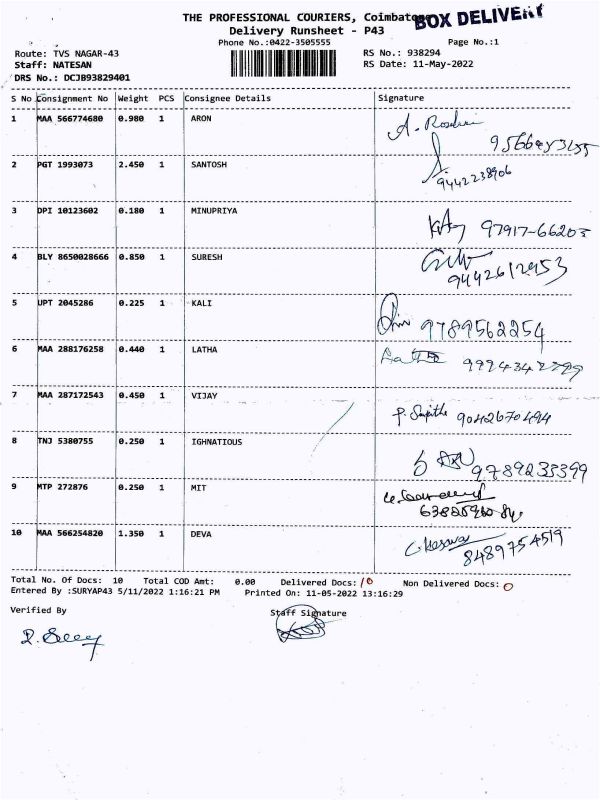 THE PROFESSIONAL COURIERS, Coimbatore
BOX DELIVERY
Delivery Runsheet - P43
Phone No.:0422-3505555
Page No.:1
Route: TVS NAGAR-43
RS No.: 938294
Staff: NATESAN
RS Date: 11-May-2022
DRS No.: DCJB93829401
S No Consignment No Weight PCS Consignee Details Signature
1 MAA 566774680 0.980 1 ARON
2 PGT 1993073 2.450 1 SANTOSH
9442238906
3 DPI 10123602 0.180 1 MINUPRIYA
97917-66203
4 BLY 8650028666 0.850 1 SURESH
9442612953
5 UPT 2045286 0.225 1 KALI
9789562254
6 MAA 288176258 0.440 1 LATHA
Latha
7 MAA 287172543 0.450 1 VIJAY
9042670494
8 TNJ 5380755 0.250 1 IGHNATIOUS
9789233399
9 MTP 272876 0.250 1 MIT
10 MAA 566254820 1.350 1 DEVA
8489754519
Total No. Of Docs: 10 Total COD Amt: 0.00 Delivered Docs: 10 Non Delivered Docs: 0
Entered By :SURYAP43 5/11/2022 1:16:21 PM Printed On: 11-05-2022 13:16:29
Verified By Staff Signature